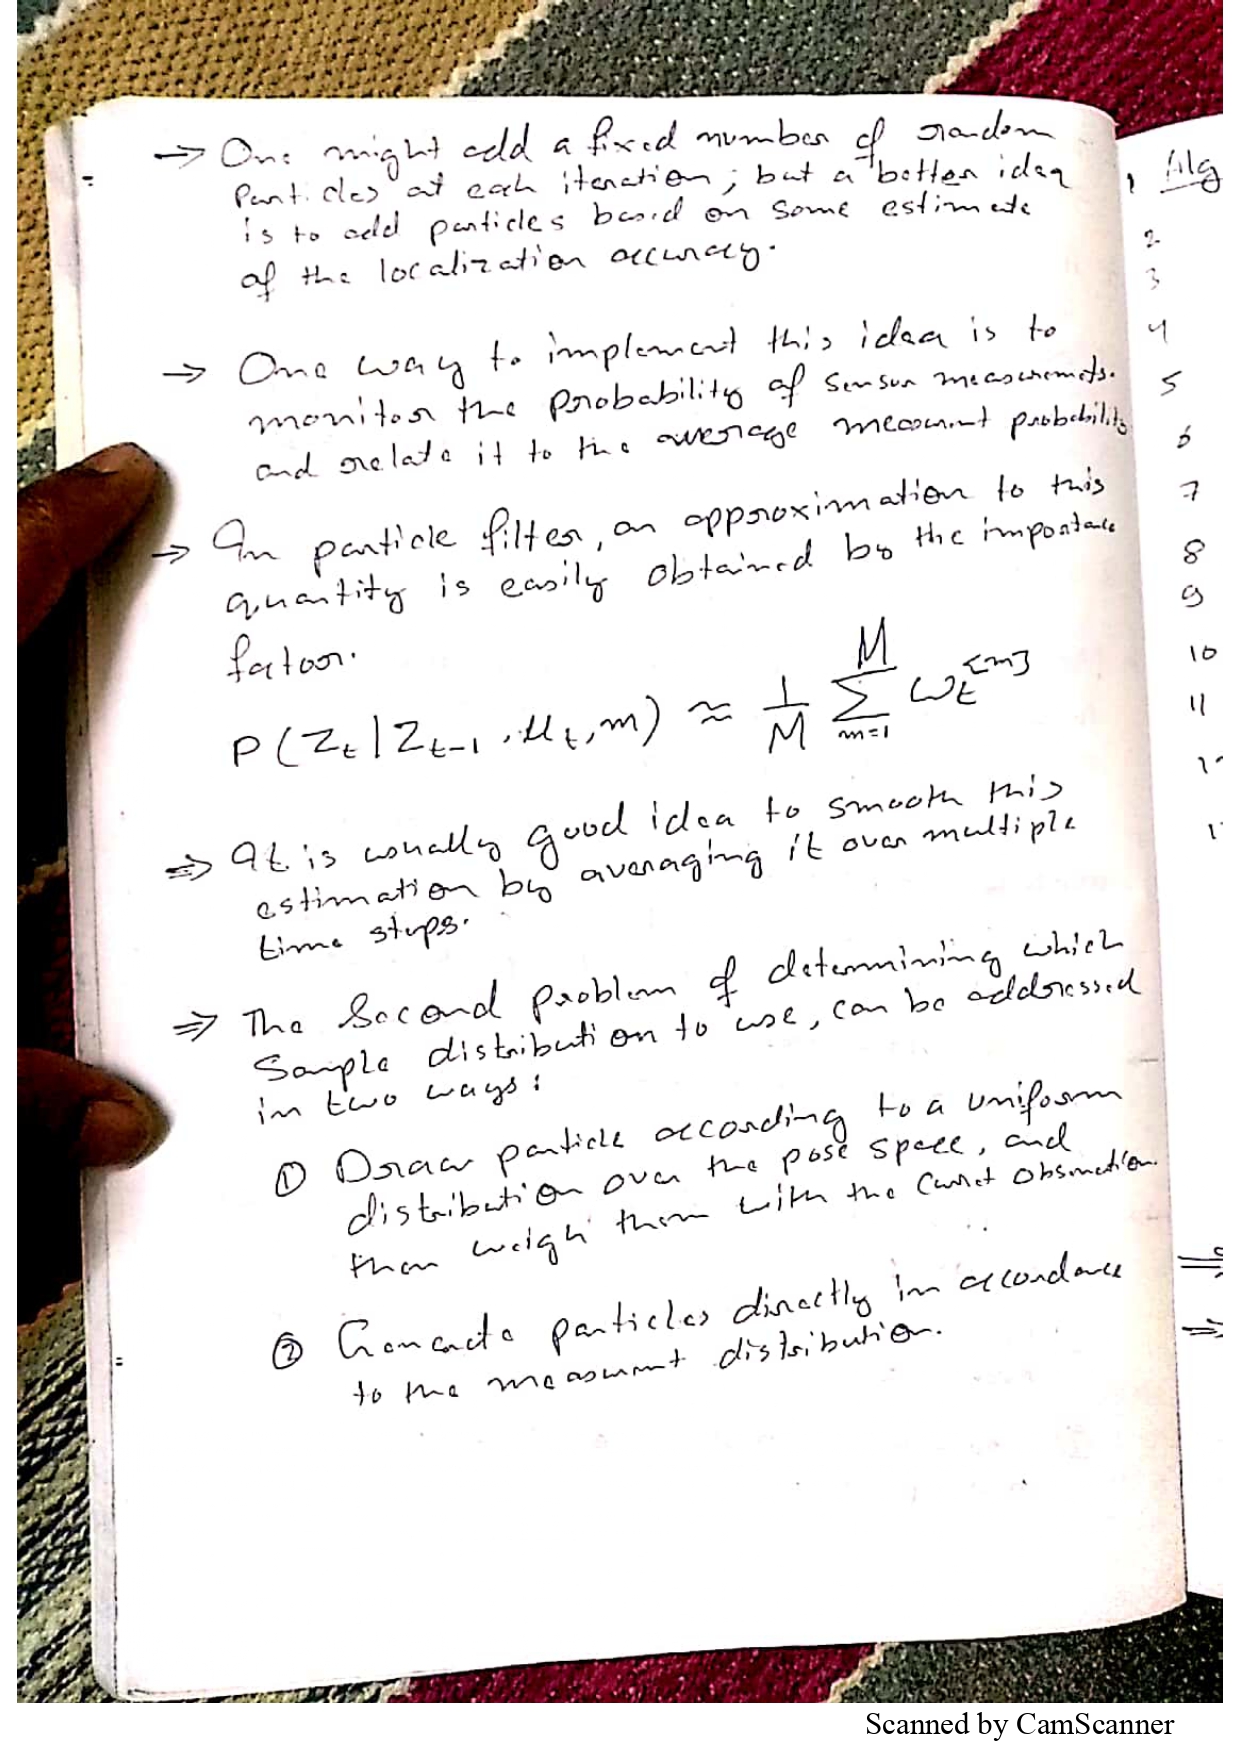 → One might add a fixed number of random
particles at each iteration; but a better idea
is to add particles based on some estimate
of the localization accuracy.
→ One way to implement this idea is to
monitor the probability of sensor measurements.
and relate it to the average measurement probability
→ In particle filter, an approximation to this
quantity is easily obtained by the importance
factor.
P(Z_t | Z_{t-1}, u_t, m) ≈ 1/M Σ_{m=1}^{M} ω_t^{[m]}
⇒ It is usually good idea to smooth this
estimation by averaging it over multiple
time steps.
⇒ The Second problem of determining which
Sample distribution to use, can be addressed
in two ways:
① Draw particle according to a uniform
distribution over the pose space, and
then weigh them with the current observation.
② Generate particles directly in accordance
to the measurement distribution.
1 Alg
2
3
4
5
6
7
8
9
10
11
Scanned by CamScanner